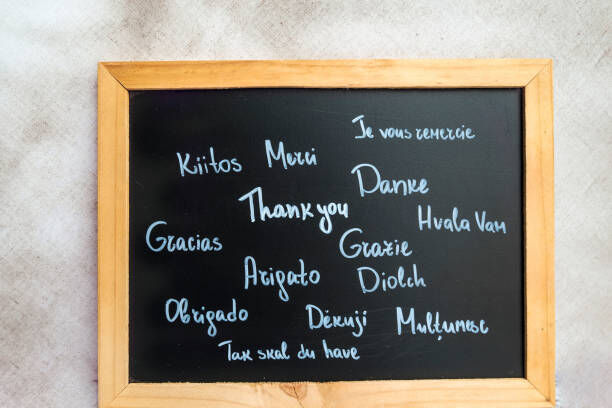 Je vous remercie
Kiitos
Merci
Danke
Thank you
Hvala Vam
Gracias
Grazie
Arigato
Diolch
Obrigado
Děkuji
Mulțumesc
Tak skal du have